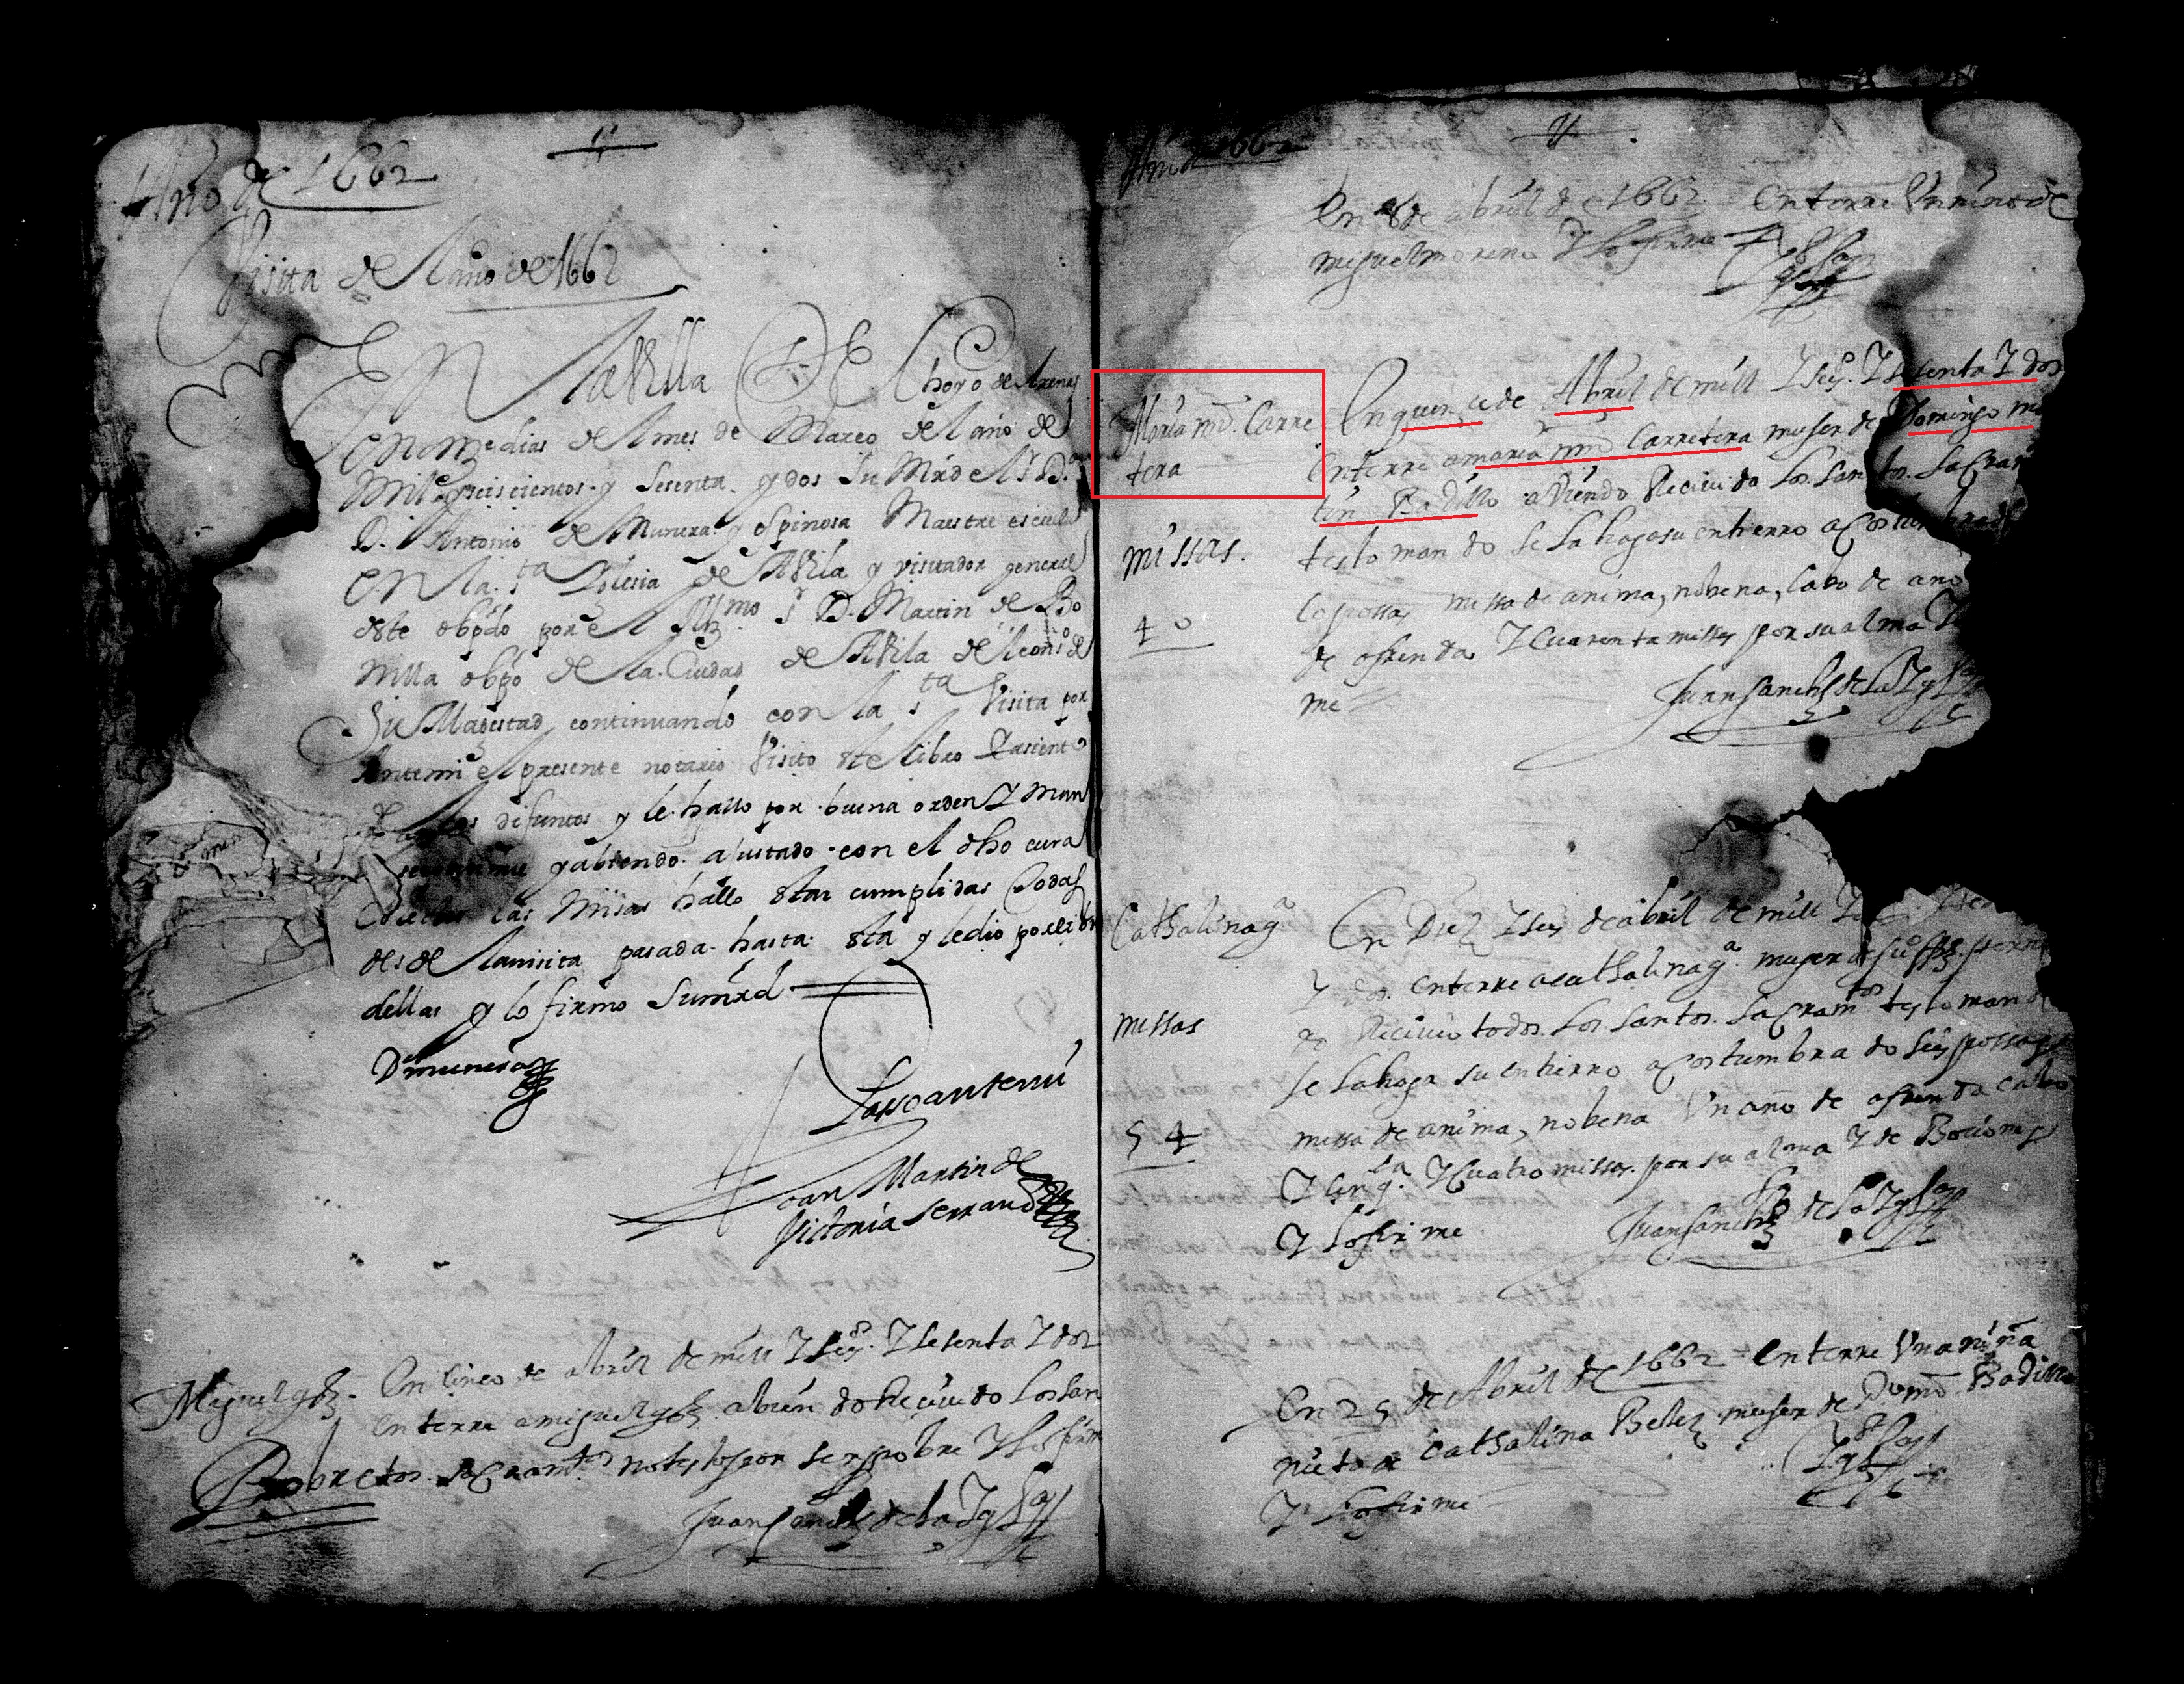 Año de 1662
Visita de Laño de 1662
EN La Villa DE El hoyo de
en medias de Lmes de Março de Laño de
Mil y seiscientos y sesenta y dos Su Mrd el Sr D.
D. Antonio de Munera y espinosa Maestre escuela
EN la sta Iglesia de AVila y visitador general
este obpdo por el Illmo Sr D. Martin de Bo
nilla obpo de la Ciudad de AVila de Lconsº de
Su Magestad continuando con la sta Visita por
Antemi el presente notario Visito este Libro
difuntos y le hallo por buena orden Y
y abiendo ajustado con el dho cura
las Misas hallo estar cumplidas todas
desde La visita pasada hasta esta y
dellas y lo firmo Sumrd
Dr munera
Passo antemi
Joan Martin de
Victoria Serrano
Miguel gz
En cinco de abril de mill Y seysº Y sesenta Y dos
enterre a miguel gz abiendo Reciuido Los san
Pobre
tos sacramtos no testo por ser pobre Y lo firme
Juan sanchez de La Yglª
Año de 1662
En 8 de abril de 1662 enterre Vn nino de
miguel moreno Y lo firme
Maria mn Carre
tera
En quince de Abril de mill Y seysº Y sesenta Y dos
enterre a maria mn Carretera muger de Domingo m
tin Badillo abiendo Reciuido Los santos sacra
missas.
testo mando se la haga su entierro acostumbrado
40
seys possas missa de anima, nobena, Cabo de ano
de ofrenda Y cuarenta missas por su alma Y
me
Juan sanchez de La Yglª
Cathalina gª
En Diez Y seys de abril de mill Y
Y dos enterre a cathalina gª muger de
Reciuio todos Los santos sacramtos testo mando
missas
se la haga su entierro acostumbrado seys possas
missa de anima, nobena Vn año de ofrenda cabo
54
Y cinqta Y cuatro missas por su alma Y de
Y Lo firme
Juan sanchez de La Yglª
En 25 de Abril de 1662 enterre Vna niña
nieta de cathalina Belez muger de Domº Badillo
Y Lo firme